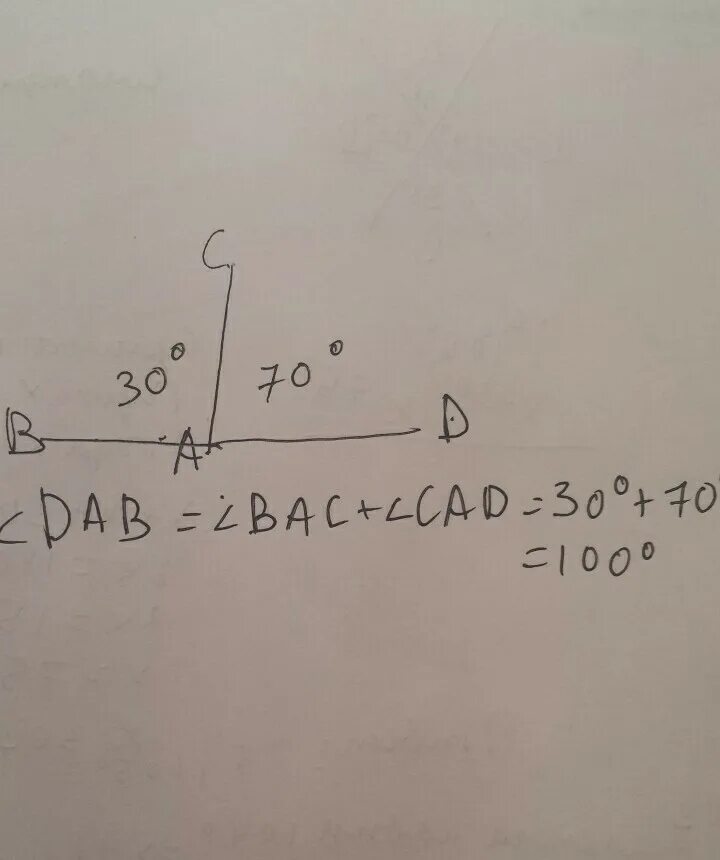 C
30° 70°
B A D
∠DAB = ∠BAC + ∠CAD = 30° + 70°
= 100°